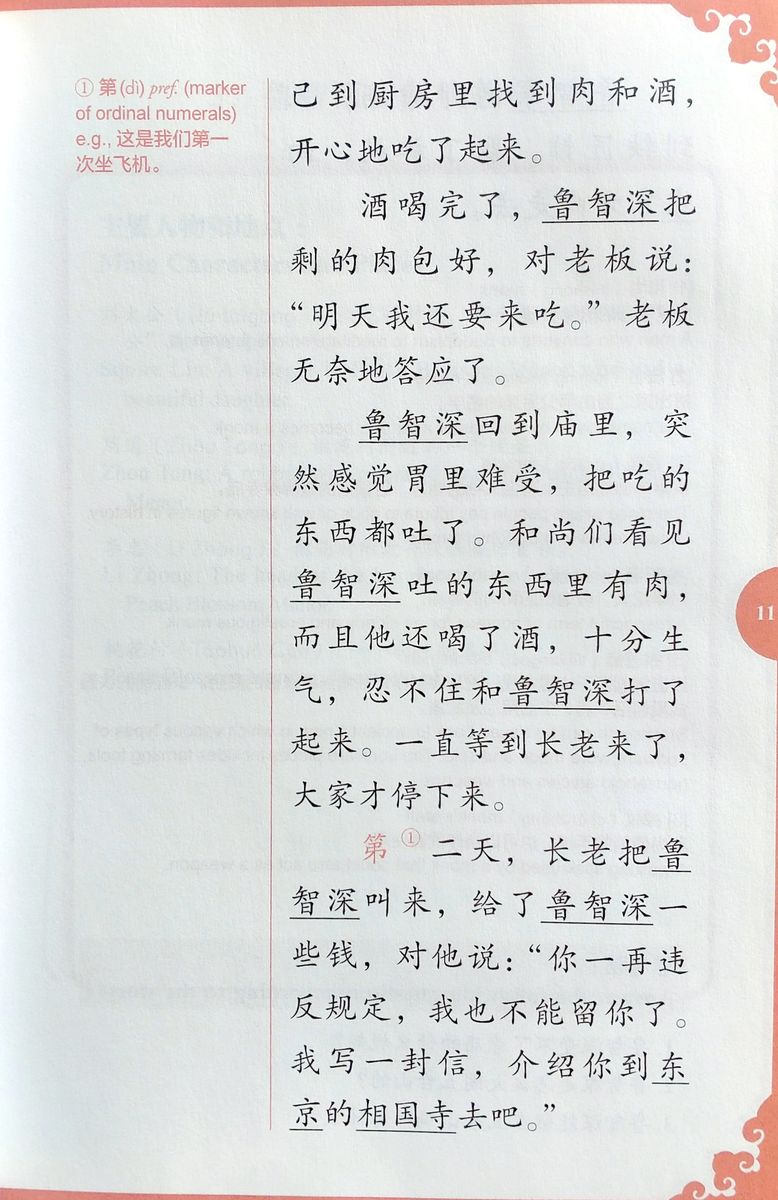 ① 第(dì) pref. (marker
of ordinal numerals)
e.g., 这是我们第一
次坐飞机。
己到厨房里找到肉和酒，
开心地吃了起来。
酒喝完了，鲁智深把
剩的肉包好，对老板说：
“明天我还要来吃。”老板
无奈地答应了。
鲁智深回到庙里，突
然感觉胃里难受，把吃的
东西都吐了。和尚们看见
鲁智深吐的东西里有肉，
而且他还喝了酒，十分生
气，忍不住和鲁智深打了
起来。一直等到长老来了，
大家才停下来。
第①二天，长老把鲁
智深叫来，给了鲁智深一
些钱，对他说：“你一再违
反规定，我也不能留你了。
我写一封信，介绍你到东
京的相国寺去吧。”
11